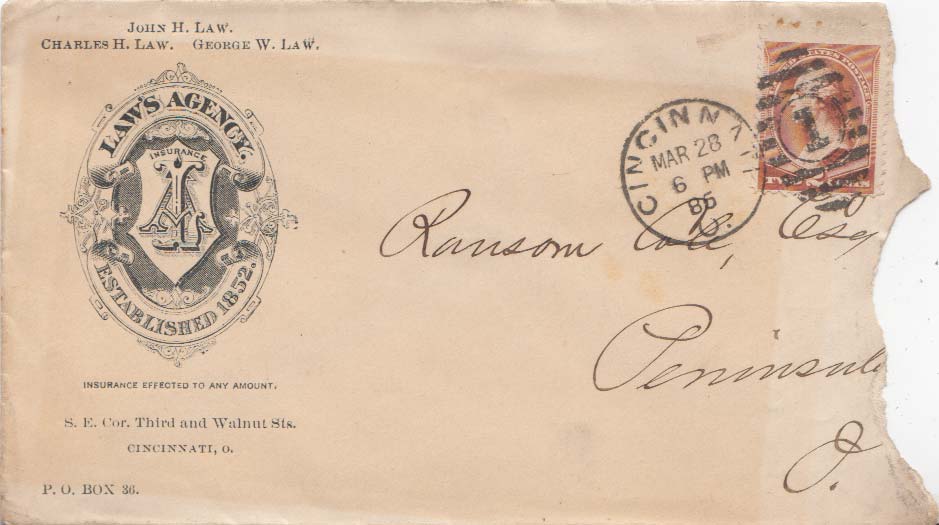 JOHN H. LAW.
CHARLES H. LAW. GEORGE W. LAW.
LAW'S AGENCY.
INSURANCE
ESTABLISHED 1852.
INSURANCE EFFECTED TO ANY AMOUNT.
S. E. Cor. Third and Walnut Sts.
CINCINNATI, O.
P. O. BOX 36.
CINCINNA
MAR 28
6 PM
86
1
Ransom Cole, Esq
Peninsul
O.